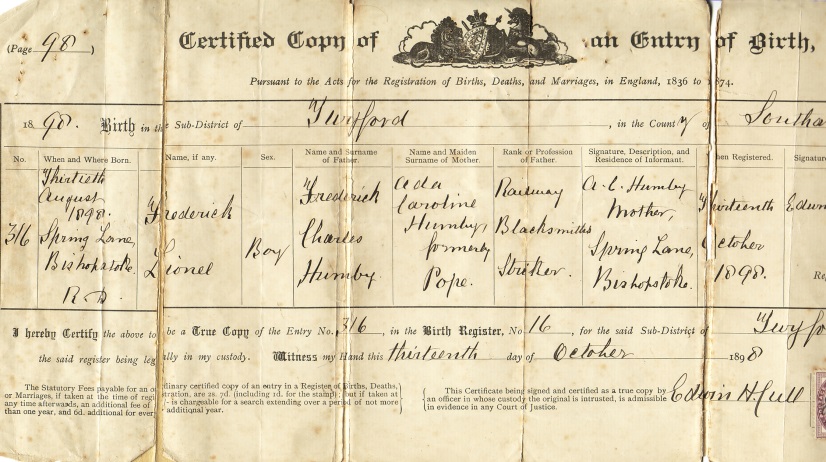 (Page 98)
Certified Copy of an Entry of Birth,
Pursuant to the Acts for the Registration of Births, Deaths, and Marriages, in England, 1836 to 1874.
1898. Birth in the Sub-District of Twyford, in the County of Southa
No. When and Where Born. Name, if any. Sex. Name and Surname of Father. Name and Maiden Surname of Mother. Rank or Profession of Father. Signature, Description, and Residence of Informant. When Registered. Signatur
316 Thirtieth August 1898. Spring Lane, Bishopstoke. R.D. Frederick Lionel Boy Frederick Charles Humby Ada Caroline Humby, formerly Pope. Railway Blacksmiths Striker. A. C. Humby Mother, Spring Lane, Bishopstoke. Thirteenth October 1898. Edwi Re
I hereby Certify the above to be a True Copy of the Entry No. 316, in the Birth Register, No 16, for the said Sub-District of Twyfo
the said register being legally in my custody. Witness my Hand this thirteenth day of October 1898
The Statutory Fees payable for an ordinary certified copy of an entry in a Register of Births, Deaths,
or Marriages, if taken at the time of registration, are 2s. 7d. (including 1d. for the stamp); but if taken at
any time afterwards, an additional fee of is chargeable for a search extending over a period of not more
than one year, and 6d. additional for every additional year.
This Certificate being signed and certified as a true copy by
an officer in whose custody the original is intrusted, is admissible
in evidence in any Court of Justice.
Edwin H. Cull